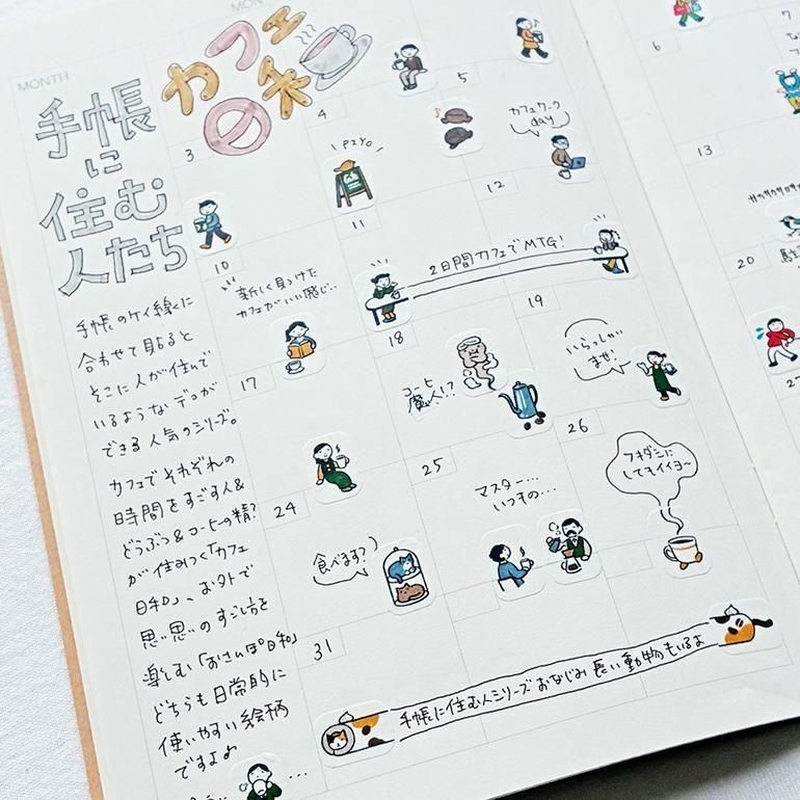 MONTH
MON
手帳
に
住む
人たち
カフェ
日和
手帳のケイ線に
合わせて貼ると
そこに人が住んで
いるようなデコが
できる人気のシリーズ。
カフェでそれぞれの
時間をすごす人&
どうぶつ&コーヒーの精?
が住みつく「カフェ
日和」、お外で
思い思いのすごし方を
楽しむ「おさんぽ日和」
どちらも日常的に
使いやすい絵柄
ですよ
3
4
5
6
PIYO
カフェワーク
day
10
11
12
13
新しく見つけた
カフェがいい感じ…
2日間カフェでMTG!
サカサカサカサカ
17
18
19
20
コーヒー
魔人!?
いらっしゃい
ませ!
24
25
26
27
食べます?
マスター…
いつもの…
フキダシに
してもイイヨ~
31
手帳に住む人シリーズおなじみ長い動物もいるよ